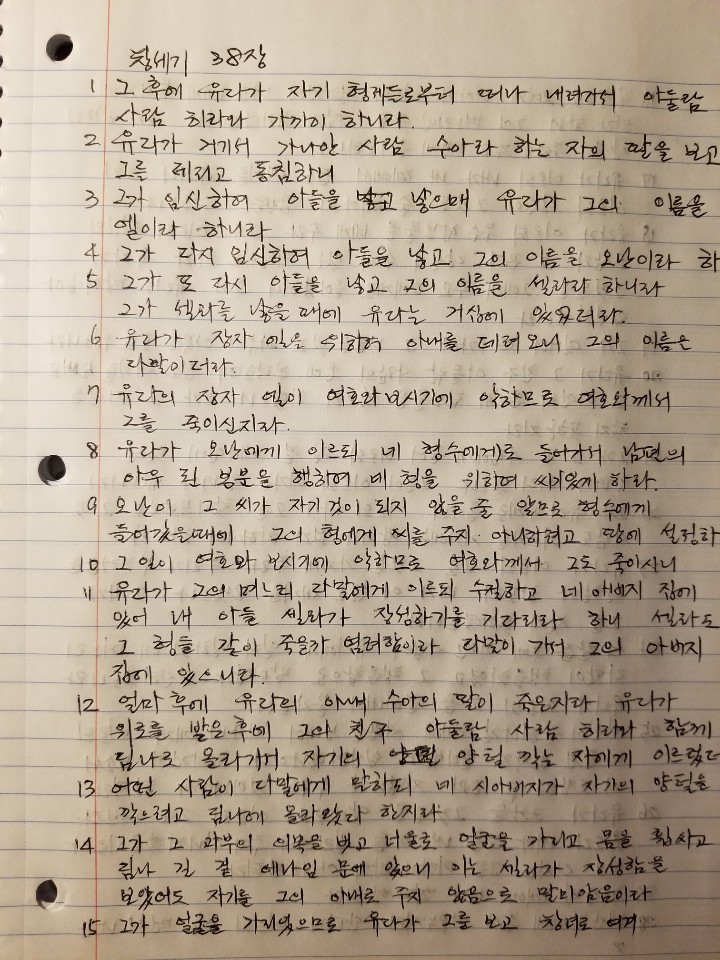 창세기 38장
1 그 후에 유다가 자기 형제들로부터 떠나 내려가서 아둘람
사람 히라와 가까이 하니라.
2 유다가 거기서 가나안 사람 수아라 하는 자의 딸을 보고
그를 데리고 동침하니
3 그가 임신하여 아들을 낳고 낳으매 유다가 그의 이름을
엘이라 하니라
4 그가 다시 임신하여 아들을 낳고 그의 이름을 오난이라 하
5 그가 또 다시 아들을 낳고 그의 이름을 셀라라 하니라
그가 셀라를 낳을 때에 유다는 거십에 있었더라.
6 유다가 장자 엘을 위하여 아내를 데려 오니 그의 이름은
다말이더라.
7 유다의 장자 엘이 여호와 보시기에 악하므로 여호와께서
그를 죽이신지라.
8 유다가 오난에게 이르되 네 형수에게로 들어가서 남편의
아우 된 본분을 행하여 네 형을 위하여 씨가있게 하라.
9 오난이 그 씨가 자기 것이 되지 않을 줄 알므로 형수에게
들어갔을때에 그의 형에게 씨를 주지 아니하려고 땅에 설정하
10 그 일이 여호와 보시기에 악하므로 여호와께서 그도 죽이시니
11 유다가 그의 며느리 다말에게 이르되 수절하고 네 아버지 집에
있어 내 아들 셀라가 장성하기를 기다리라 하니 셀라도
그 형들 같이 죽을까 염려함이라 다말이 가서 그의 아버지
집에 있으니라.
12 얼마 후에 유다의 아내 수아의 딸이 죽은지라 유다가
위로를 받은 후에 그의 친구 아둘람 사람 히라와 함께
딤나로 올라가서 자기의 양털 깎는 자에게 이르렀더
13 어떤 사람이 다말에게 말하되 네 시아버지가 자기의 양털을
깎으려고 딤나에 올라왔다 한지라
14 그가 그 과부의 의복을 벗고 너울로 얼굴을 가리고 몸을 휩싸고
딤나 길 곁 에나임 문에 앉으니 이는 셀라가 장성함을
보았어도 자기를 그의 아내로 주지 않음으로 말미암음이라
15 그가 얼굴을 가리었으므로 유다가 그를 보고 창녀로 여겨